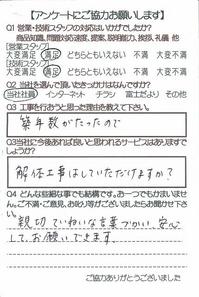 【アンケートにご協力お願いします】
Q1 営業・技術スタッフの対応はいかがでしたか?
商品知識、問題対応速度、提案、説明能力、挨拶、礼儀 他
[営業スタッフ]
大変満足 満足 どちらともいえない 不満 大変不満
[技術スタッフ]
大変満足 満足 どちらともいえない 不満 大変不満
Q2 当社を選んで頂いたきっかけはなんですか?
当社社員 インターネット チラシ 富士だより その他
Q3 工事を行おうと思った理由を教えて下さい。
築年数がたったので
Q3 当社に今後あれば良いと思われるサービスはありますでしょうか?
解体工事はしていただけますか?
Q4 どんな些細な事でも結構です。お一つでもかまいません。ご不満・ご意見、お叱り等がございましたらお聞かせ下さい。
親切、ていねいな言葉でかい、安心
して、お願いできます。
ご協力ありがとうございました